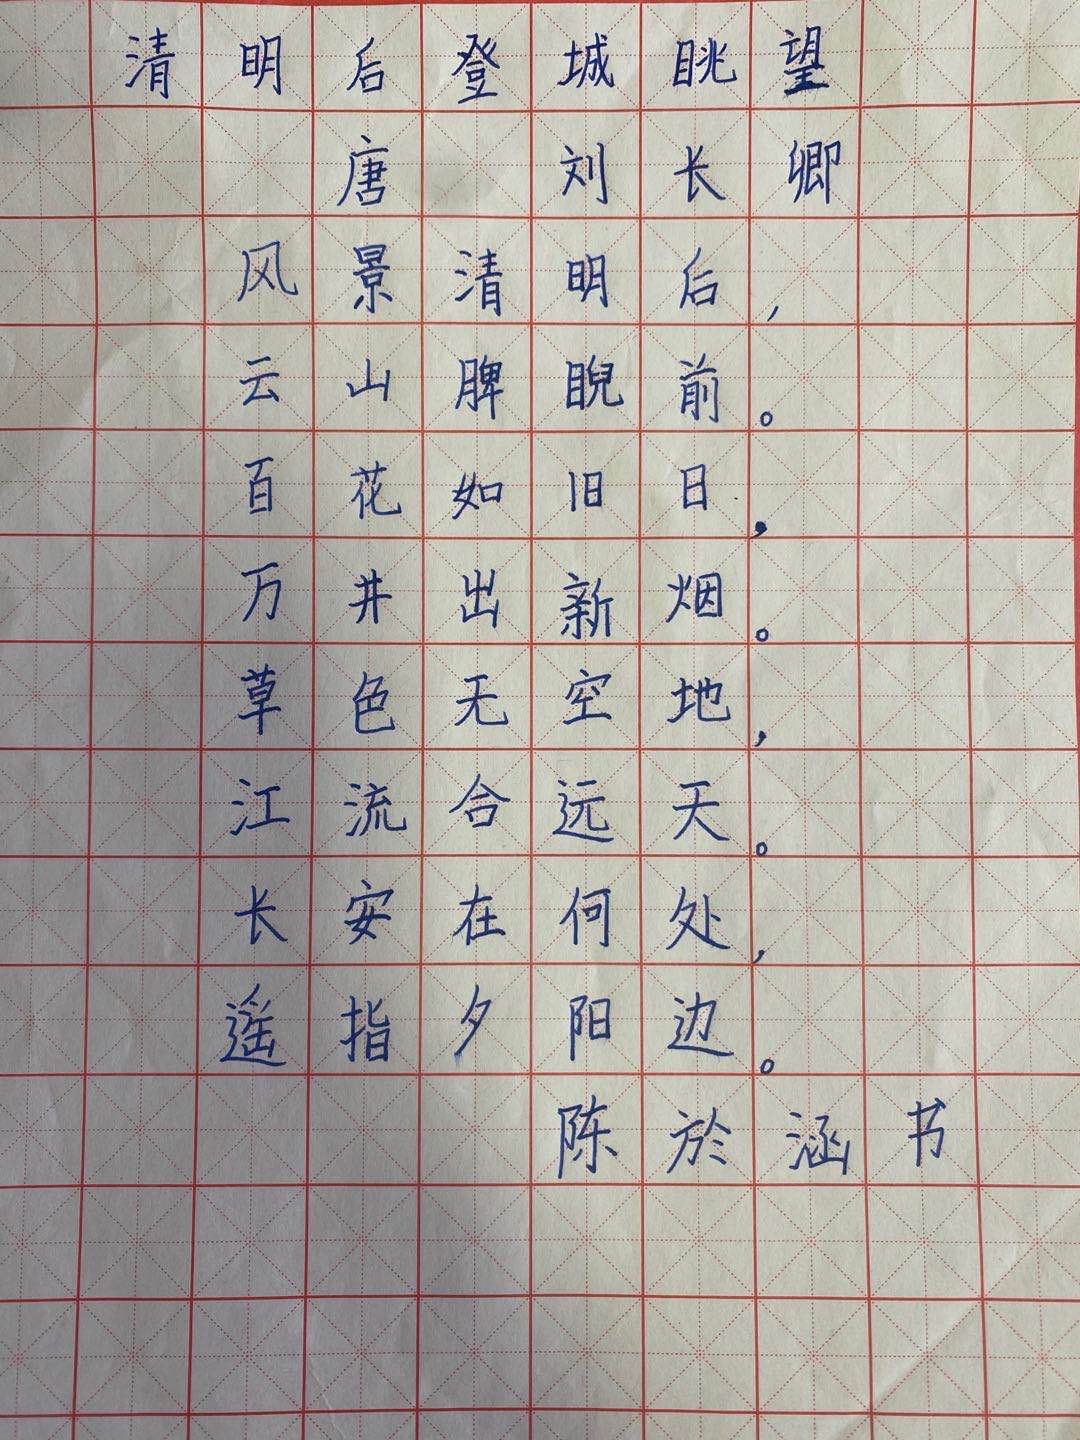 清明后登城眺望
唐 刘长卿
风景清明后,
云山脾睨前。
百花如旧日,
万井出新烟。
草色无空地,
江流合远天。
长安在何处,
遥指夕阳边。
陈於涵书